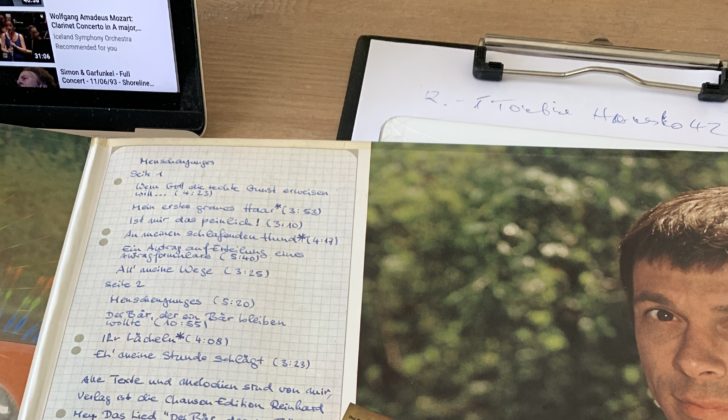 Wolfgang Amadeus Mozart:
Clarinet Concerto in A major,...
Iceland Symphony Orchestra
Recommended for you
31:06
Simon & Garfunkel - Full
Concert - 11/06/93 - Shoreline...
Menschenjunges
Seite 1
Wem Gott die rechte Gunst erweisen
will... (4:23)
Mein erstes graues Haar* (3:53)
Ist mir das peinlich! (3:10)
An meinen schlafenden Hund* (4:17)
Ein Antrag auf Erteilung eines
Antragformulars (5:40)
All' meine Wege (3:25)
Seite 2
Menschenjunges (5:20)
Der Bär, der ein Bär bleiben
wollte (10:55)
Ihr Lächeln* (4:08)
Eh' meine Stunde schlägt (3:23)
Alle Texte und Melodien sind von mir,
Verlag ist die Chanson-Edition Reinhard
Mey. Das Lied "Der Bär,